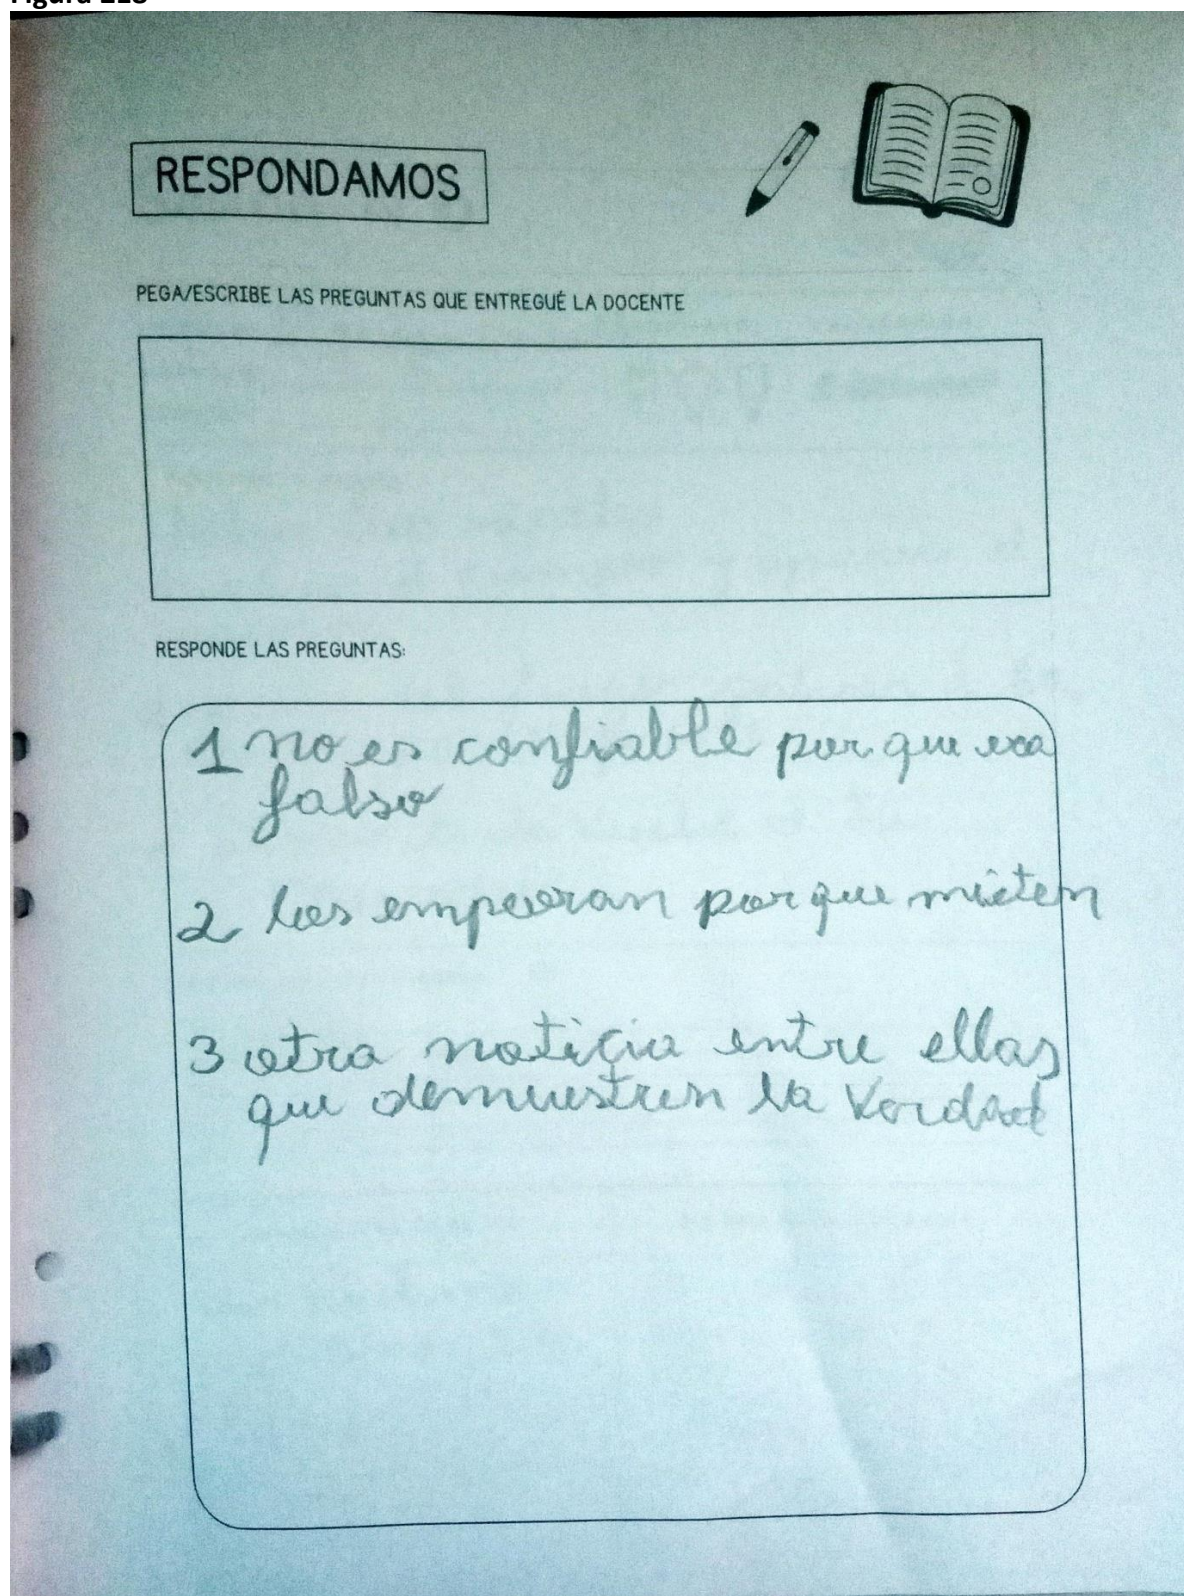 RESPONDAMOS
PEGA/ESCRIBE LAS PREGUNTAS QUE ENTREGUÉ LA DOCENTE
RESPONDE LAS PREGUNTAS:
1 no es confiable por que era
falso
2 los empeoran por que mieten
3 otra noticia entre ellas
que demuestren la verdad